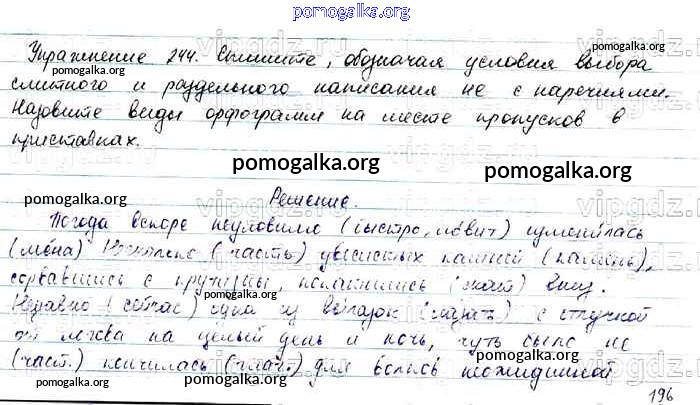 pomogalka.org
Упражнение 244. Спишите, обозначая условия выбора
pomogalka.org pomogalka.org
слитного и раздельного написания не с наречиями.
Назовите виды орфограмм на месте пропусков в
приставках.
pomogalka.org pomogalka.org
pomogalka.org Решение.
Погода вскоре неуловимо (быстро, ловит) изменилась
(мена) (часть) увесистых камней (камень),
сорвавшись с кручины, покатились (знай) вниз.
pomogalka.org
Недавно (сейчас) одна из вылазок (лазать) с отлучкой
от на целый день и ночь, чуть было не
(част.) кончилась (глаг.) для неожиданной
pomogalka.org pomogalka.org pomogalka.org
196